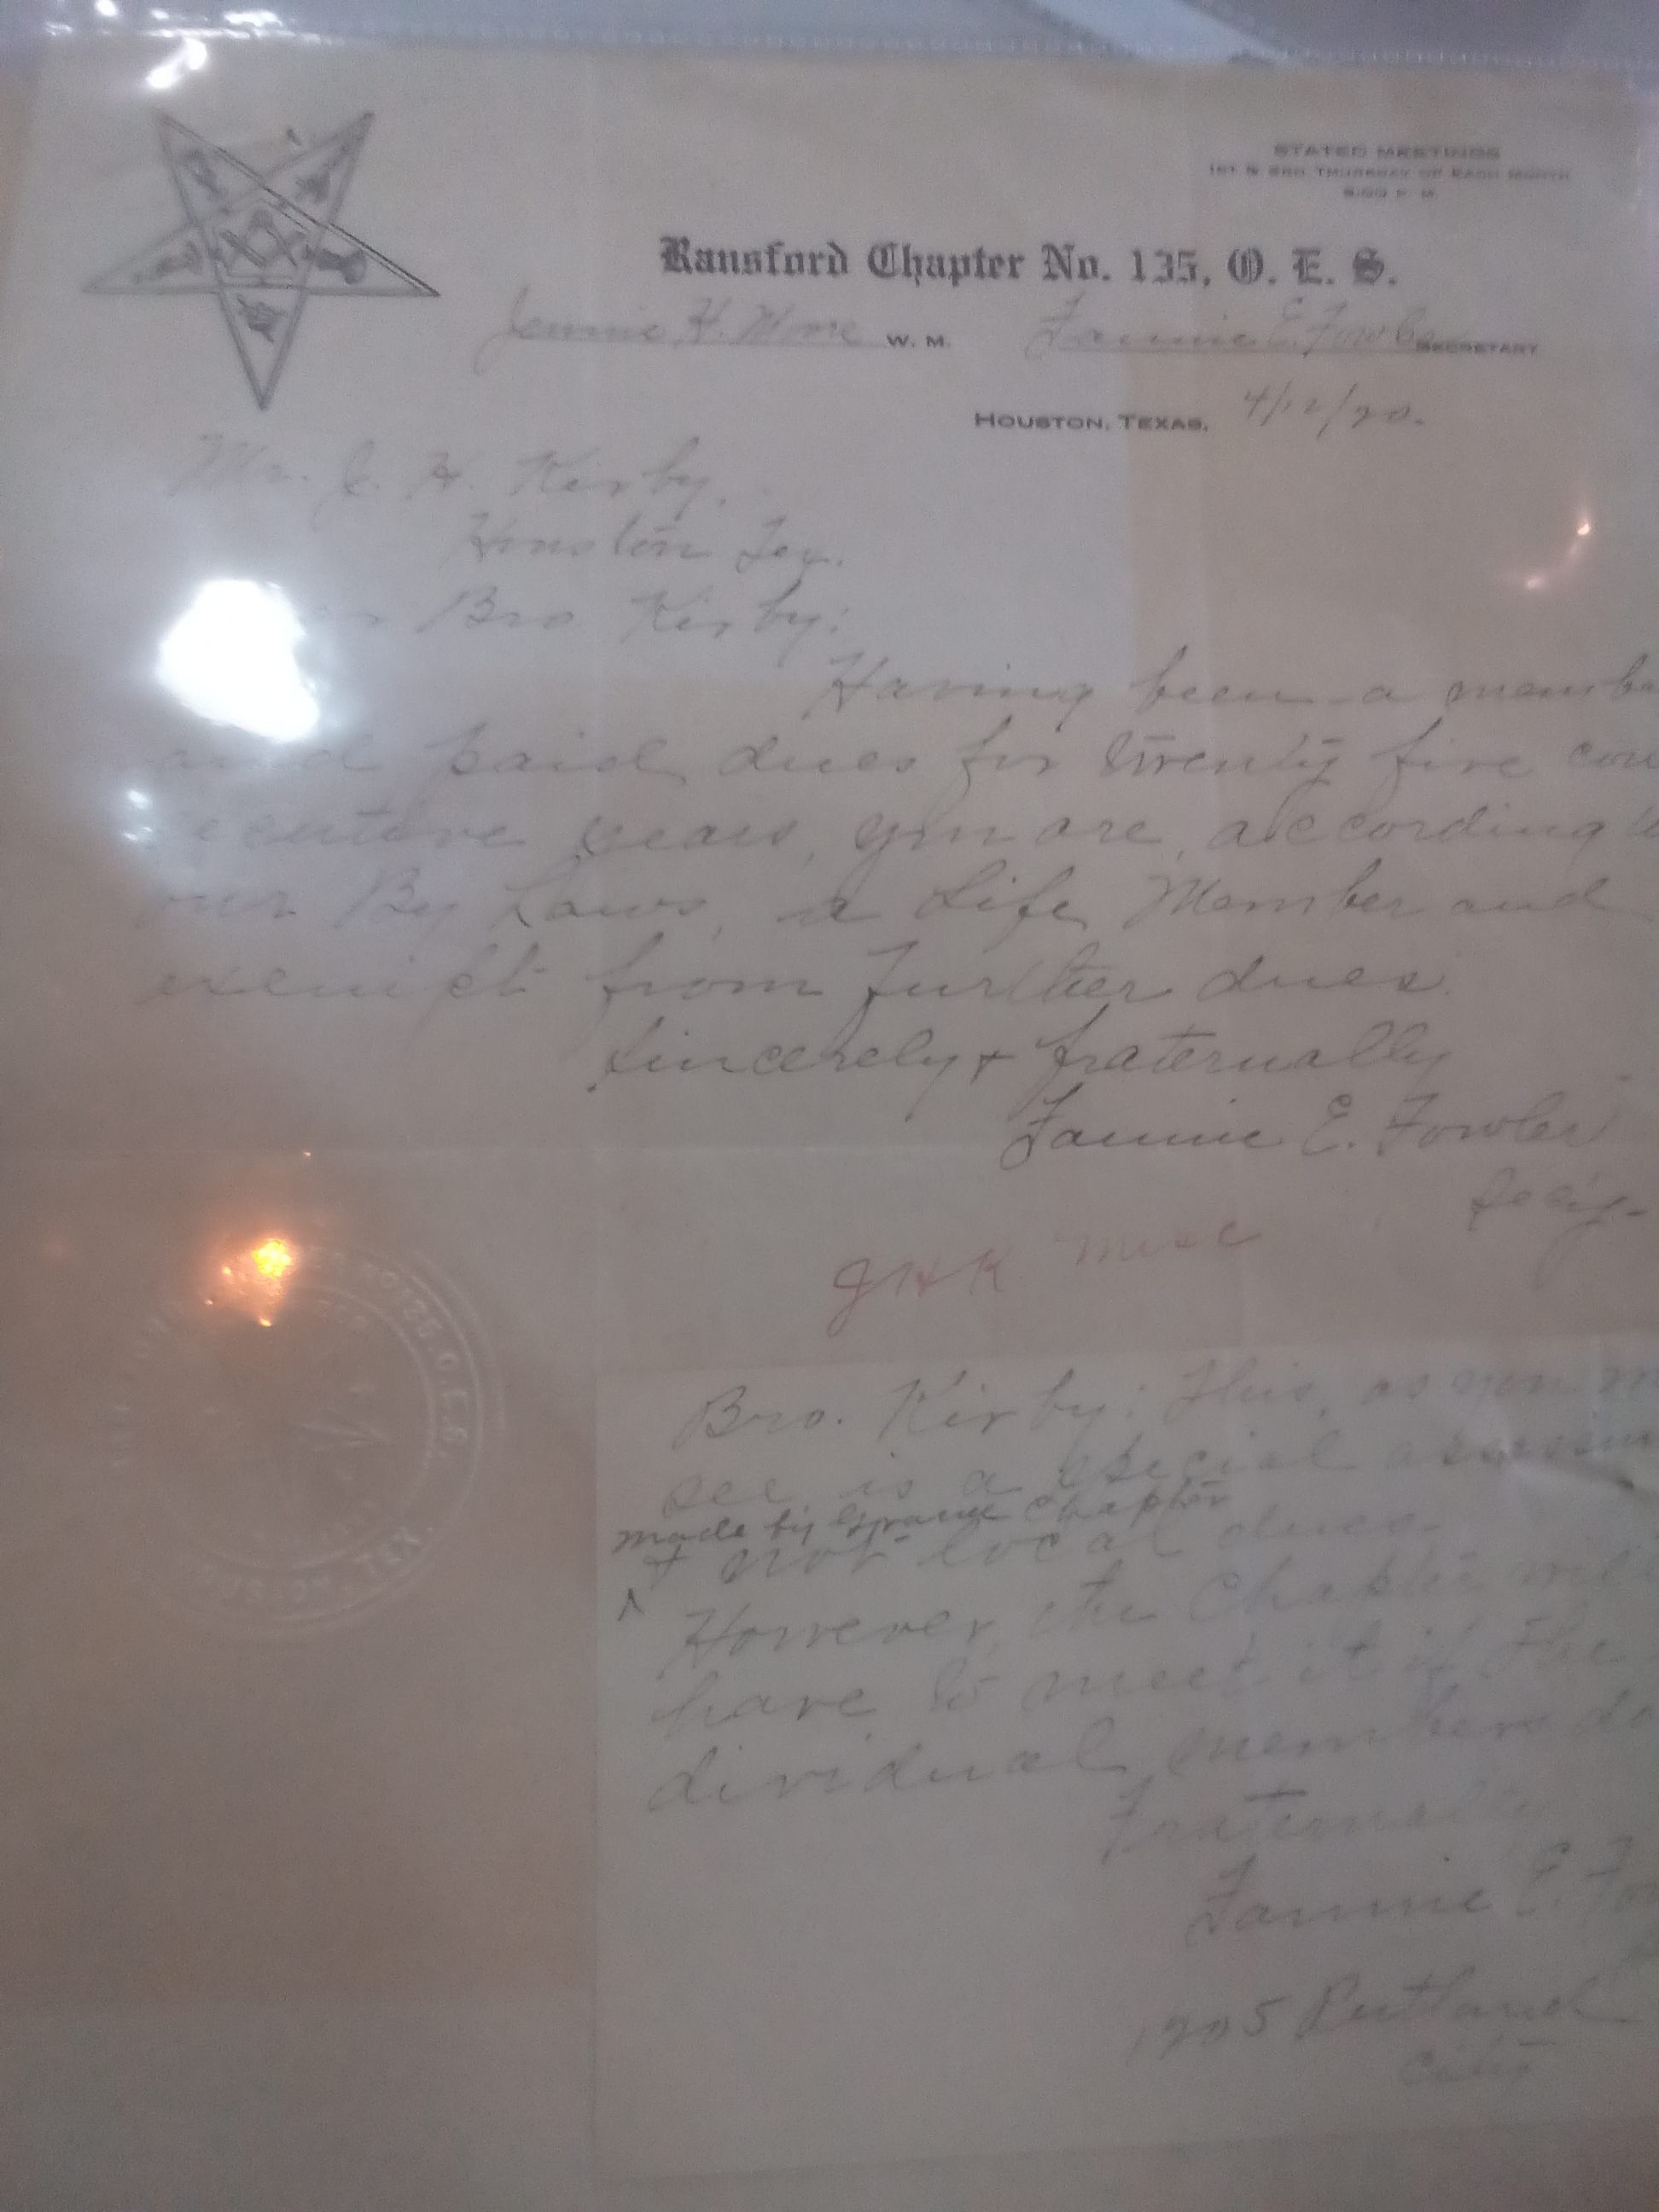 STATED MEETINGS
1ST & 3RD THURSDAY OF EACH MONTH
8:00 P. M.
Ransford Chapter No. 135, O. E. S.
Jennie H. Moore W. M. Fannie E. Fowler SECRETARY
HOUSTON, TEXAS, 4/12/20.
Mr. J. H. Kirby,
Houston Tex.
Bro Kirby:
Having been a membe
and paid dues for twenty five con
secutive years, you are, according to
our By Laws, a Life Member and
exempt from further dues.
Sincerely & fraternally
Fannie E. Fowler
Secy-
JHK misc
NO. 135. O. E. S.
HOUSTON, TEX.
Bro. Kirby: This, as you m
see is a special assessm
made by Grand Chapter
& not local dues.
However, the Chapter will
have to meet it if the
dividual members do
Fraternally
Fannie E. Fo
Rutland
City